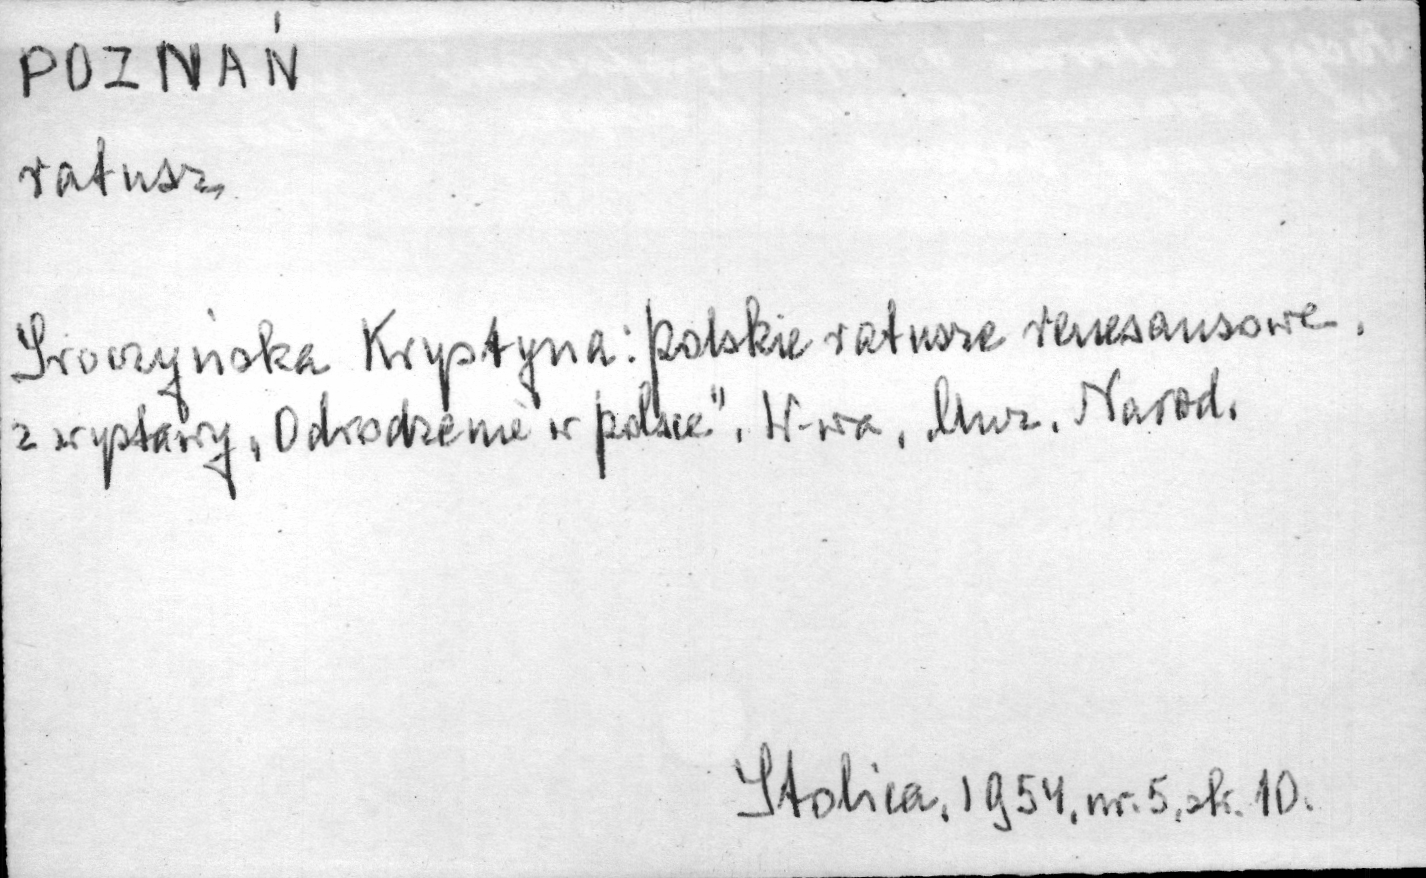 POZNAŃ
ratusz
Sroczyńska Krystyna: polskie ratusze renesansowe.
z wystawy "Odrodzenie w polsce". W-wa, Muz. Narod.
Stolica, 1954, nr. 5, str. 10.